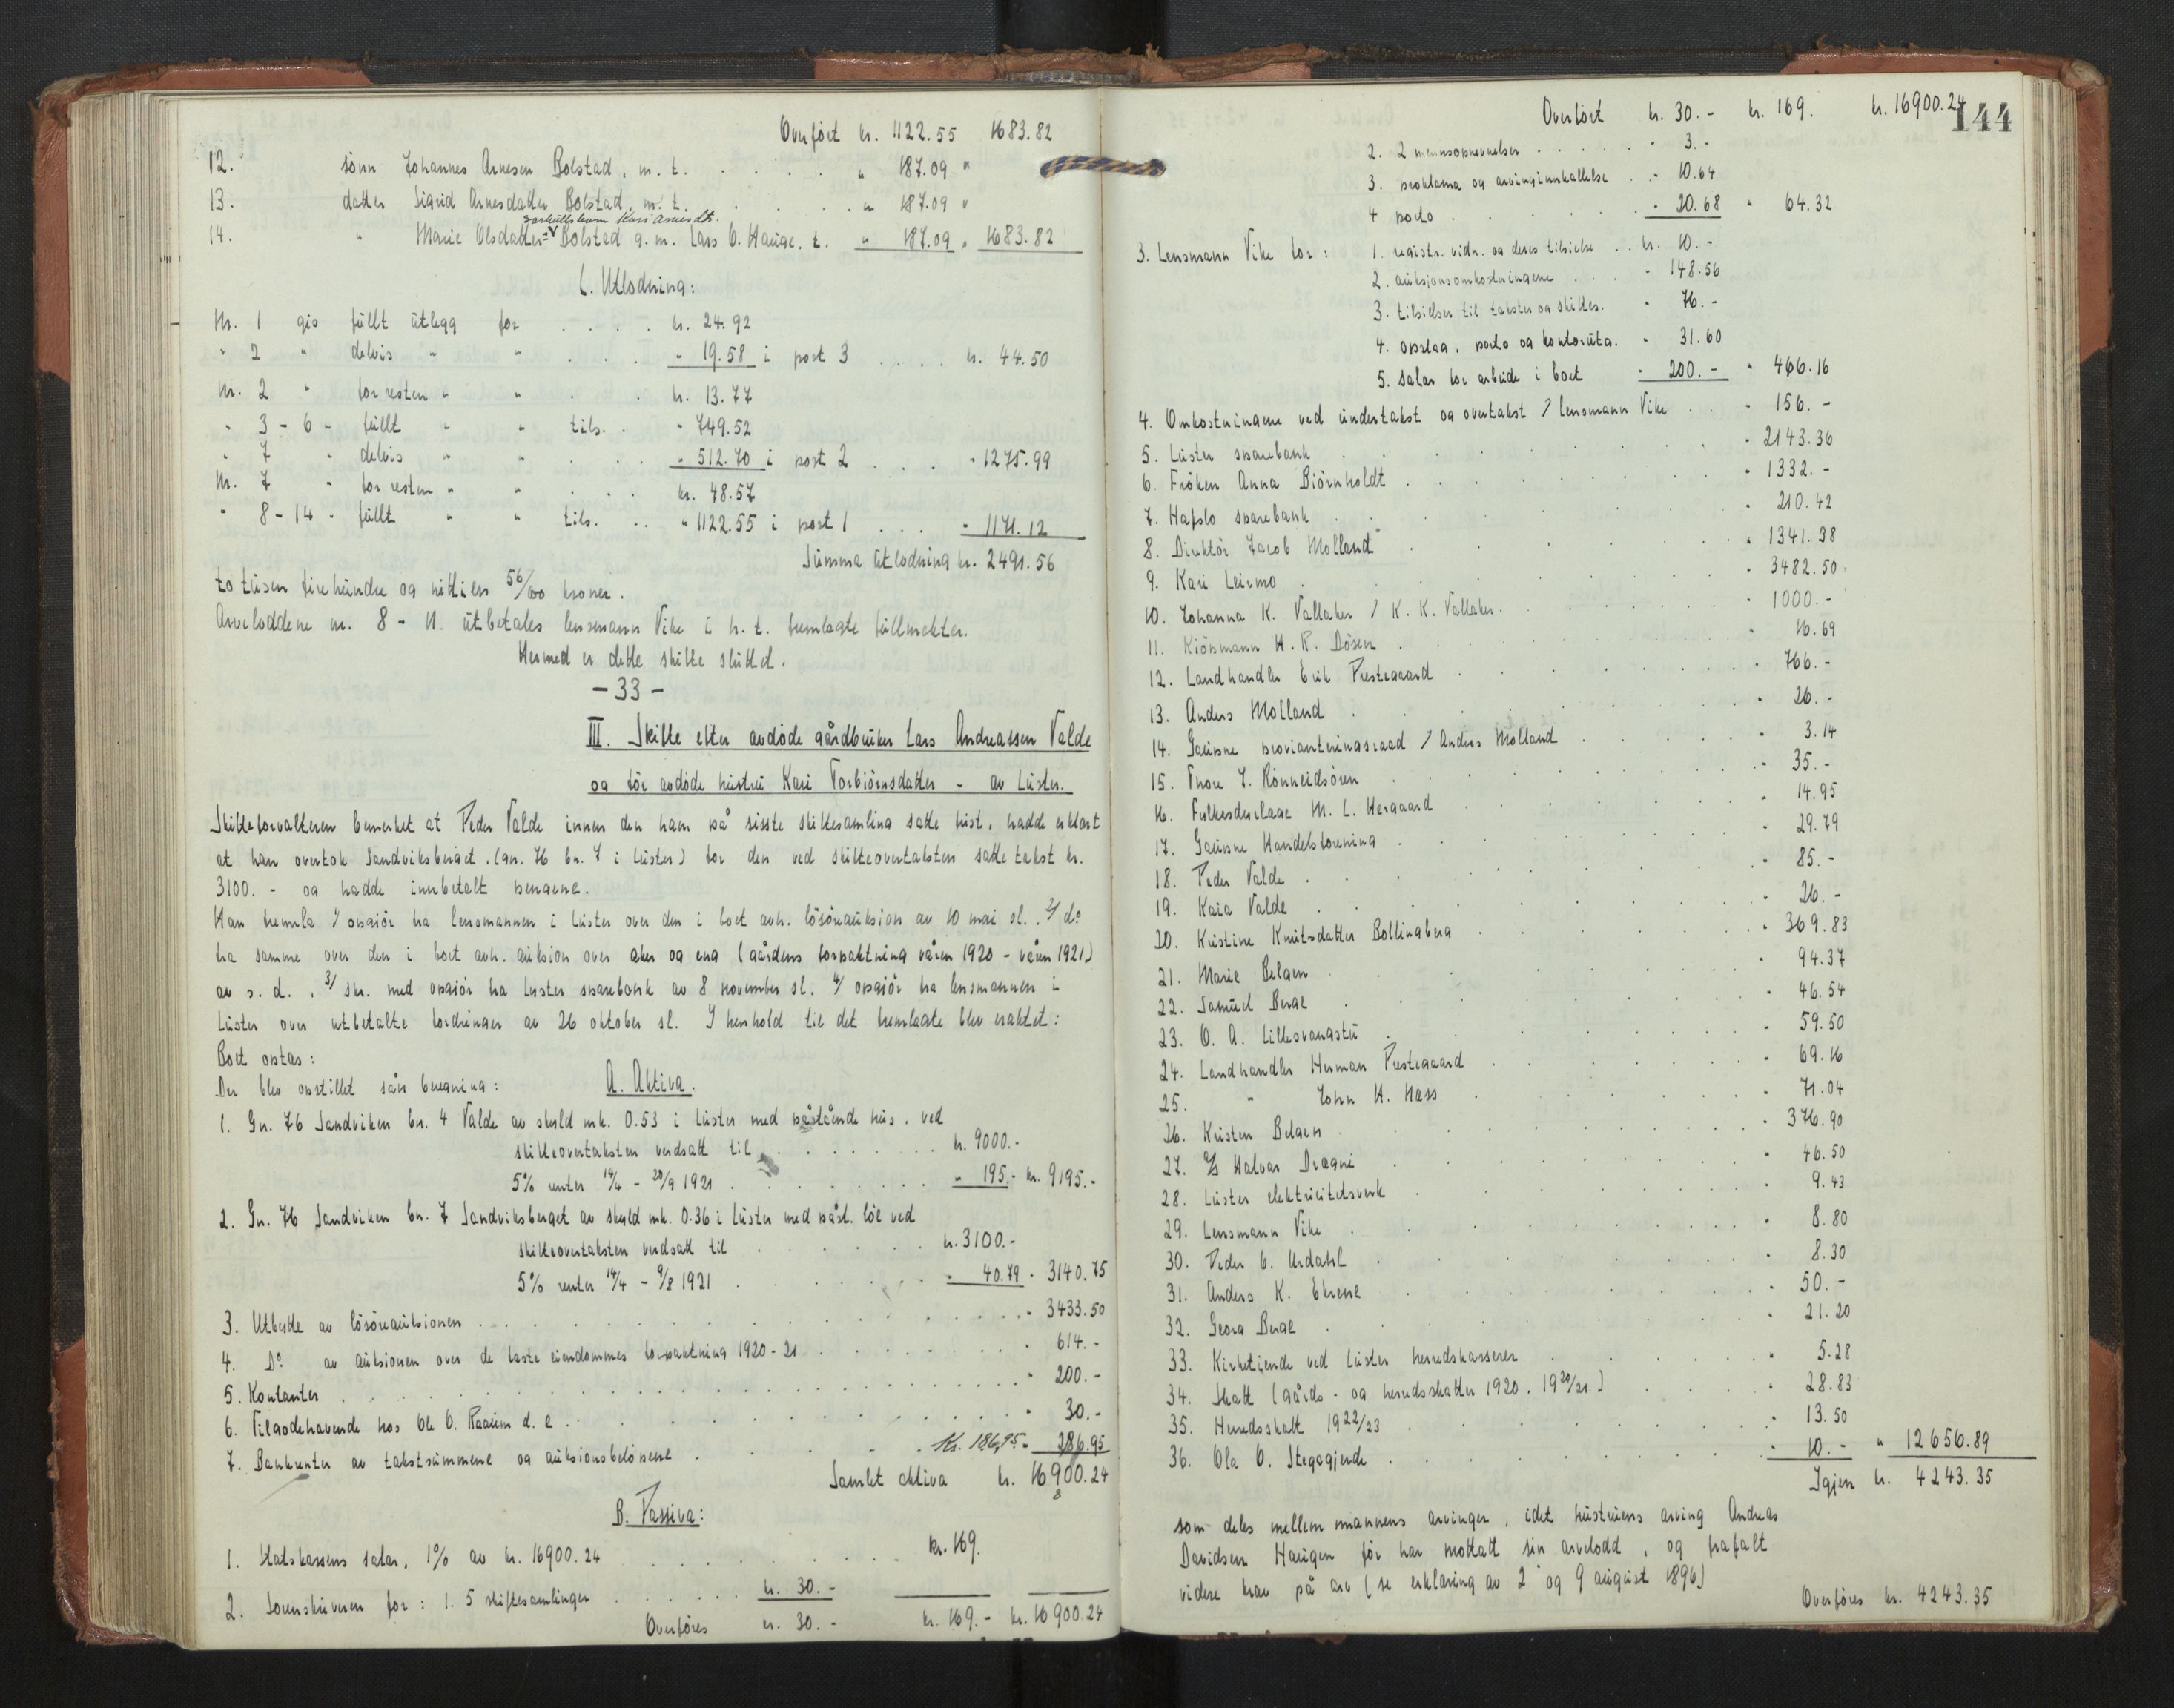 Overført kr. 1122.55 1683.82
12. sønn Johannes Arnesen Bolstad, m. t. . . . . " 187.09 "
13. datter Sigrid Arnesdatter Bolstad, m. t. . . . . " 187.09 "
særkullsbarn Kari Arnesdt.
14. " Marie Olsdatter Bolstad g. m. Lars O. Hauge. t. " 187.09 " 1683.82
C. Utlodning:
Nr. 1 gis fullt utlegg for . . . . kr. 24.92
" 2 " delvis " " . . . . " 19.58 i post 3 . . . . kr. 44.50
Nr. 2 " for resten " " . . kr. 13.77
" 3 - 6 " fullt " " tils. . " 749.52
" 7 " delvis " " . . . . " 512.70 i post 2 . . . . " 1275.99
Nr. 7 " for resten " " . . . kr. 48.57
" 8 - 14 " fullt " " tils. . . " 1122.55 i post 1 . . . " 1171.12
Summa utlodning kr. 2491.56
to tusen firehundre og nittien 56/100 kroner.
Arveloddene nr. 8 - 11. utbetales lensmann Vike i h. t. fremlagte fullmakter.
Hermed er dette skifte sluttet.
- 33 -
III. Skifte efter avdøde gårdbruker Lars Andreassen Valde
og før avdøde hustru Kari Torbjørnsdatter - av Luster.
Skifteforvalteren bemerket at Peder Valde innen den ham på siste skiftesamling satte frist, hadde erklært
at han overtok Sandviksberget, (gn. 76 bn. 7 i Luster) for den ved skifteovertaksten satte takst kr.
3100.- og hadde innbetalt pengene.
Han fremla 1/ opgjør fra lensmannen i Luster over den i boet avh. løsøreauksjon av 10 mai sl. 2/ do
fra samme over den i boet avh. auksjon over aker og eng (gårdens forpaktning våren 1920 - våren 1921)
av s. d. , 3/ skr. med opgjør fra Luster sparebank av 8 november sl. 4/ opgjør fra lensmannen i
Luster over utbetalte fordringer av 26 oktober sl. I henhold til det fremlagte blev eraktet:
Boet optas:
Der blev opstillet sån beregning: A. Aktiva.
1. Gn. 76 Sandviken bn. 4 Valde av skyld mk. 0.53 i Luster med påstående hus, ved
skifteovertaksten verdsatt til . . . . . . . kr. 9000.-
5% renter 14/4 - 20/9 1921 . . . . . . . " 195.- kr. 9195.-
2. Gn. 76 Sandviken bn. 7 Sandviksberget av skyld mk. 0.36 i Luster med påst. løe ved
skifteovertaksten verdsatt til . . . . . . kr. 3100.-
5% renter 14/4 - 9/8 1921 . . . . . . . " 40.79 " 3140.75
3. Utbytte av løsøreauksjonen . . . . . . . . . . . " 3433.50
4. Do av auksjonen over de faste eiendommes forpaktning 1920-21 . . . . . . " 614.-
5. Kontanter . . . . . . . . . . . . . . " 200.-
6. Tilgodehavende hos Ole O. Raaum d. e. . . . . . . . . . " 30.-
7. Bankrenter av takstsummene og auksjonsbeløpene . . . . . kr. 186,95 " 286.95
Samlet aktiva kr. 16900.24
8
B. Passiva:
1. Statskassens salær, 1% av kr. 16900.24 . . . . . . . . kr. 169.
2. Sorenskriveren for: 1. 5 skiftesamlinger . . . . . . kr. 30.-
Overføres kr. 30.- kr. 169.- kr. 16900.24
144
Overført kr. 30.- kr. 169. kr. 16900.24
2. 2 mennsopnevnelser . . . . . " 3.-
3. proklama og arvinginnkallelse . . " 10.64
4 porto . . . . . . . " 20.68 " 64.32
3. Lensmann Vike for: 1. registr. vidn. og deres tilsielse . . kr. 10.-
2. auksjonsomkostningene . . . " 148.56
3. tilsielser til takster og skiftes. " 76.-
4. opslag, porto og kontorutg. " 31.60
5. salær for arbeide i boet " 200.- " 466.16
4. Omkostningene ved undertakst og overtakst / lensmann Vike . . . " 156.-
5. Luster sparebank . . . . . . . . " 2143.36
6. Frøken Anna Bjørnholdt . . . . . . . " 1332.-
7. Hafslo sparebank . . . . . . . . " 210.42
8. Direktør Jacob Molland . . . . . . . " 1341.38
9. Kari Leirmo . . . . . . . . " 3482.50
10. Johanna K. Vallaker / K. K. Vallaker. . . . . . " 1000.-
11. Kjøpmann H. R. Døsen . . . . . . . " 16.69
12. Landhandler Eirik Prestegaard . . . . . . . " 766.-
13. Anders Molland . . . . . . . . " 26.-
14. Gaupne provianteringsraad / Anders Molland . . . . . " 3.14
15. Thore J. Rønneidsøren . . . . . . . " 35.-
16. Fylkesdyrlæge M. L. Hergaard . . . . . . " 14.95
17. Gaupne Handelsforening . . . . . . . " 29.79
18. Peder Valde . . . . . . . . " 85.-
19. Kaia Valde . . . . . . . . " 26.-
20. Kristine Knutsdatter Bollingberg . . . . . . " 369.83
21. Marie Belgen . . . . . . . . " 94.37
22. Samuel Berge . . . . . . . . " 46.54
23. O. A. Lillesvangstu . . . . . . . " 59.50
24. Landhandler Herman Prestegaard . . . . . . " 69.16
25. " John H. Hass . . . . . . " 71.04
26. Kristen Belgen . . . . . . . . " 376.90
27. A/S Halvar Drægni . . . . . . . " 46.50
28. Luster elektricitetsverk . . . . . . . " 9.43
29. Lensmann Vike . . . . . . . . " 8.80
30. Peder O. Urdahl . . . . . . . . " 8.30
31. Anders K. Ekrene . . . . . . . . " 50.-
32. Georg Berge . . . . . . . . " 21.20
33. Kirketiende ved Luster herredskasserer . . . . . " 5.28
34. Skatt (gårds- og herredsskatter 1920, 1920/21) . . . . " 28.83
35. Herredsskatt 1922/23 . . . . . . . " 13.50
36. Ola O. Stegagjerde . . . . . . . " 10.- " 12656.89
Igjen kr. 4243.35
som deles mellem mannens arvinger, idet hustruens arving Andreas
Davidsen Haugen før har mottatt sin arvelodd, og frafalt
videre krav på arv (se erklæring av 2 og 9 august 1896)
Overføres kr. 4243.35